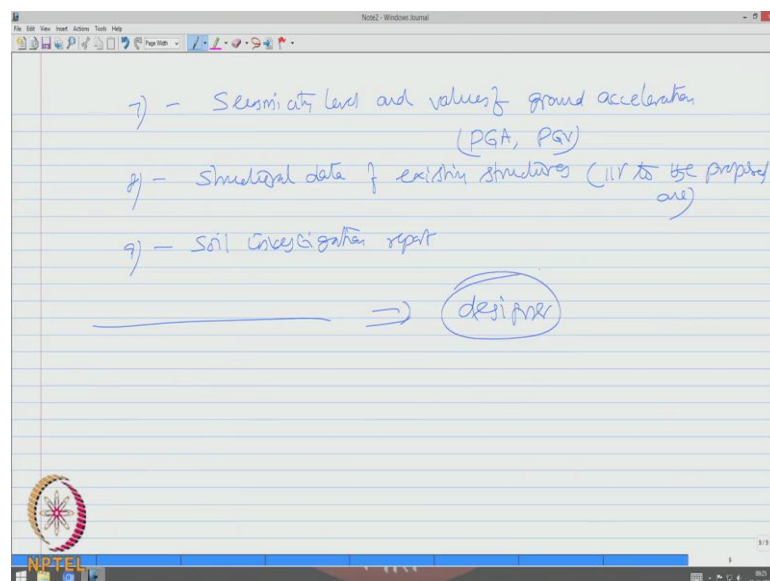 Note2 - Windows Journal
File Edit View Insert Actions Tools Help
Page Width
7) - Seismicity level and values of ground acceleration
(PGA, PGV)
8) - Structural data of existing structures (llr to the proposed
one)
9) - Soil investigation report
⇒ designer
9/9
NPTEL